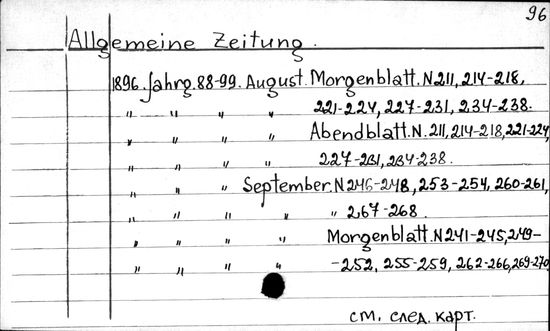 96
Allgemeine Zeitung.
1896. Jahrg. 88-99. August. Morgenblatt. N 211, 214-218,
" " " " 221-224, 227-231, 234-238.
" " " " Abendblatt. N. 211, 214-218, 221-224,
" " " " 227-231, 234-238.
" " " September. N 246-248, 253-254, 260-261,
" " " " " 267-268.
" " " " Morgenblatt. N 241-245, 249-
" " " " -252, 255-259, 262-266, 269-270.
см. след. карт.